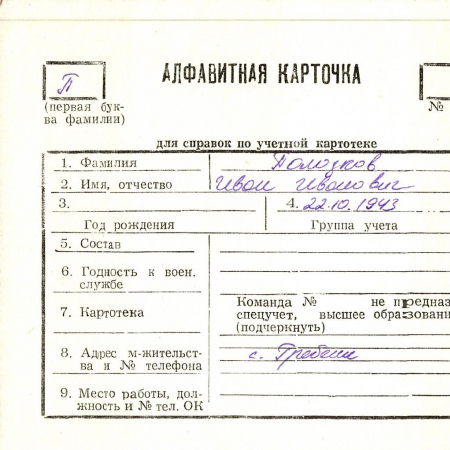 АЛФАВИТНАЯ КАРТОЧКА
П
(первая бук-
ва фамилии)
№
для справок по учетной картотеке
1. Фамилия Полозков
2. Имя, отчество Иван Иванович
3. 4. 22.10.1943
Год рождения Группа учета
5. Состав
6. Годность к воен.
службе
7. Картотека
Команда № не предназ
спецучет, высшее образовани
(подчеркнуть)
8. Адрес м-жительст-
ва и № телефона
с. Гребени
9. Место работы, дол-
жность и № тел. ОК